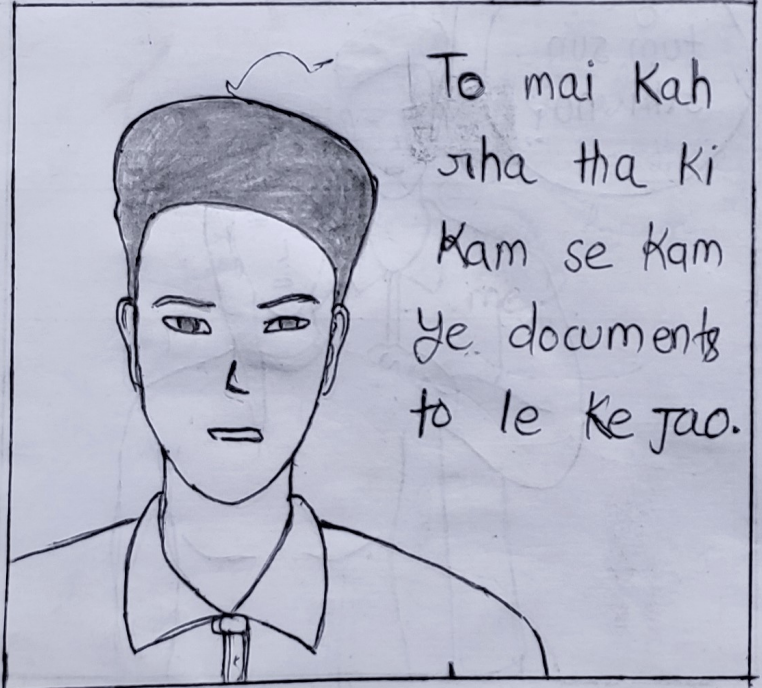 To mai Kah
rha tha ki
Kam se Kam
ye documents
to le ke Jao.